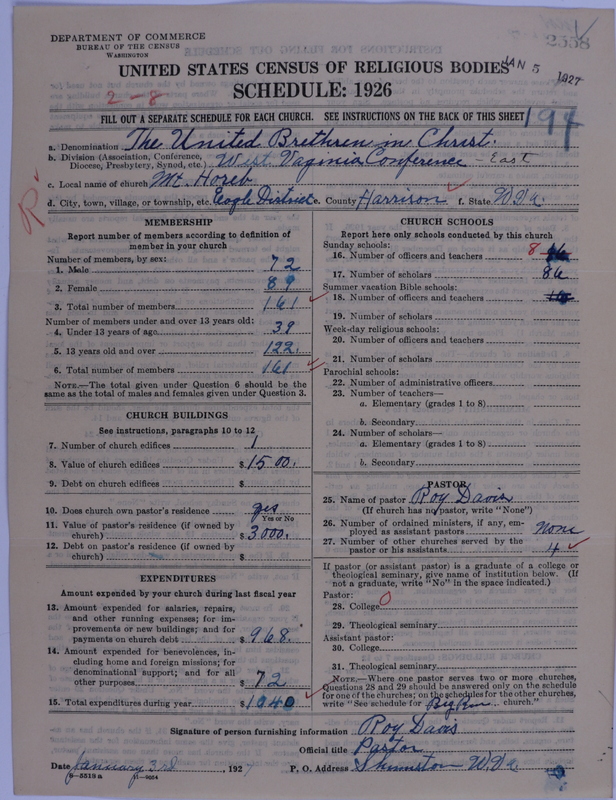 DEPARTMENT OF COMMERCE
BUREAU OF THE CENSUS
WASHINGTON
2558
JAN 5 1927
UNITED STATES CENSUS OF RELIGIOUS BODIES
SCHEDULE: 1926
2-8
FILL OUT A SEPARATE SCHEDULE FOR EACH CHURCH. SEE INSTRUCTIONS ON THE BACK OF THIS SHEET
197
a. Denomination The United Brethren in Christ.
b. Division (Association, Conference, Diocese, Presbytery, Synod, etc.) West Virginia Conference - East
c. Local name of church Mt. Horeb
d. City, town, village, or township, etc. Eagle District e. County Harrison f. State W.Va.
R
MEMBERSHIP
Report number of members according to definition of
member in your church
Number of members, by sex:
1. Male 72
2. Female 89
3. Total number of members 161
Number of members under and over 13 years old:
4. Under 13 years of age 39
5. 13 years old and over 122
6. Total number of members 161
NOTE.—The total given under Question 6 should be the
same as the total of males and females given under Question 3.
CHURCH BUILDINGS
See instructions, paragraphs 10 to 12
7. Number of church edifices 1
8. Value of church edifices $1500.
9. Debt on church edifices $
10. Does church own pastor's residence yes
Yes or No
11. Value of pastor's residence (if owned by
church) $3000.
12. Debt on pastor's residence (if owned by
church) $
EXPENDITURES
Amount expended by your church during last fiscal year
13. Amount expended for salaries, repairs,
and other running expenses; for im-
provements or new buildings; and for
payments on church debt $968.
14. Amount expended for benevolences, in-
cluding home and foreign missions; for
denominational support; and for all
other purposes $72
15. Total expenditures during year $1040
CHURCH SCHOOLS
Report here only schools conducted by this church
Sunday schools:
16. Number of officers and teachers 8
17. Number of scholars 86
Summer vacation Bible schools:
18. Number of officers and teachers
19. Number of scholars
Week-day religious schools:
20. Number of officers and teachers
21. Number of scholars
Parochial schools:
22. Number of administrative officers
23. Number of teachers—
a. Elementary (grades 1 to 8)
b. Secondary
24. Number of scholars—
a. Elementary (grades 1 to 8)
b. Secondary
PASTOR
25. Name of pastor Roy Davis
(If church has no pastor, write "None")
26. Number of ordained ministers, if any, em-
ployed as assistant pastors None
27. Number of other churches served by the
pastor or his assistants 4
If pastor (or assistant pastor) is a graduate of a college or
theological seminary, give name of institution below. (If
not a graduate, write "No" in the space indicated.)
Pastor:
28. College 0
29. Theological seminary
Assistant pastor:
30. College
31. Theological seminary
NOTE.—Where one pastor serves two or more churches,
Questions 28 and 29 should be answered only on the schedule
for one of the churches; on the schedules for the other churches,
write "See schedule for church."
Signature of person furnishing information Roy Davis
Official title Pastor
Date January 3rd, 1927 P. O. Address Shinnston W.Va
8—5518a 11—9664